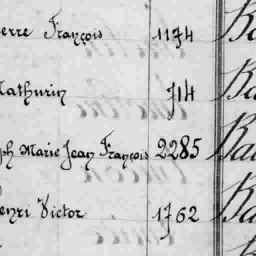 erre François 1174 Ba
Mathurin 714 Ba
ph Marie Jean François 2285 Bau
Henri Victor 1762 Ba